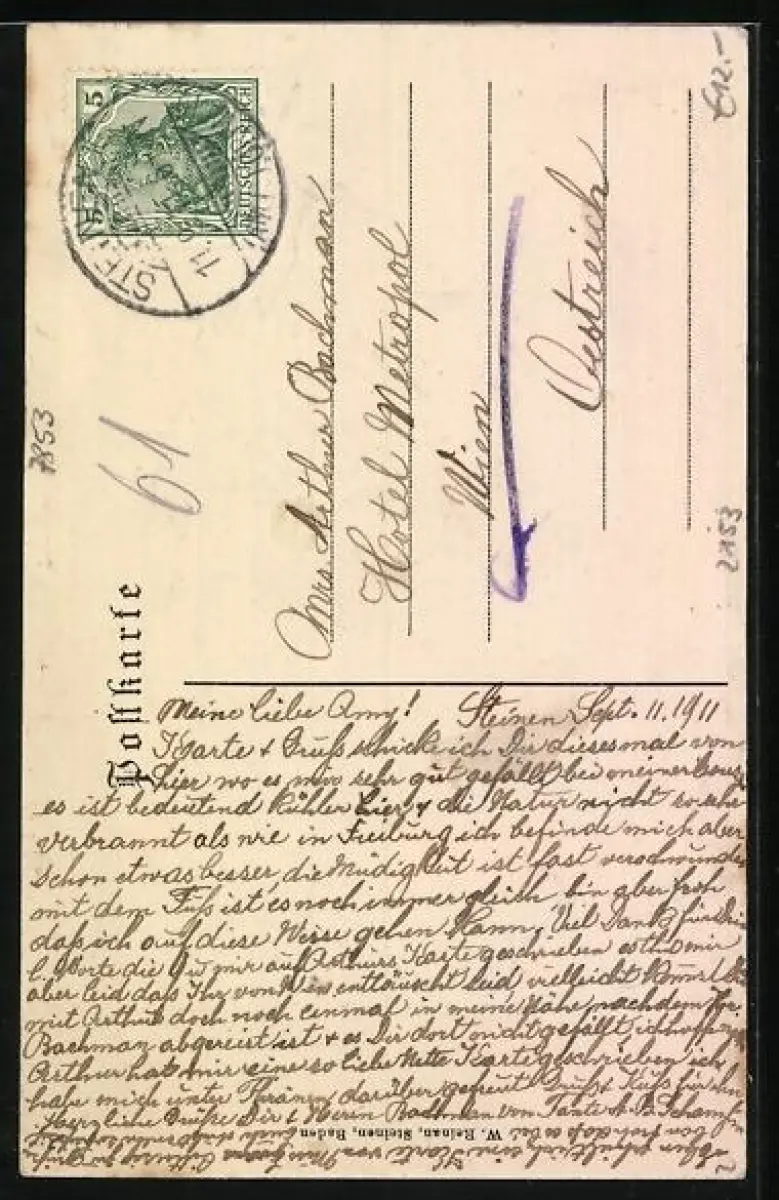 Postkarte
5 5
DEUTSCHES REICH
STEINEN
11.
61
7853
€12.-
21153
Mrs Arthur Bachman
Hotel Metropol
Wien
Oestreich
Meine liebe Amy! Steinen Sept. 11. 1911
Karte & Gruß schicke ich Dir dieses mal von
hier wo es mir sehr gut gefällt bei meiner
es ist bedeutend kühler hier & die Natur nicht so sehr
verbrannt als wie in Freiburg ich befinde mich aber
schon etwas besser, die Müdigkeit ist fast verschwunden
mit dem Fuß ist es noch immer gleich bin aber froh
daß ich auf diese Weise gehen kann. Viel Dank für
l. Worte die Du mir auf Arthurs Karte geschrieben es thut mir
aber leid daß Ihr von Wien enttäuscht seid vielleicht kommt
mit Arthur doch noch einmal in meine Nähe nachdem
Bachman abgereist ist & es Dir dort nicht gefällt ich hoffe
Arthur hat mir eine so liebe nette Karte geschrieben ich
habe mich unter Thränen darüber gefreut Gruß & Kuß für ihn
herzliche Grüße Dir & Herrn Bachman von Tante
W. Reinau, Steinen, Baden
eine Karte von